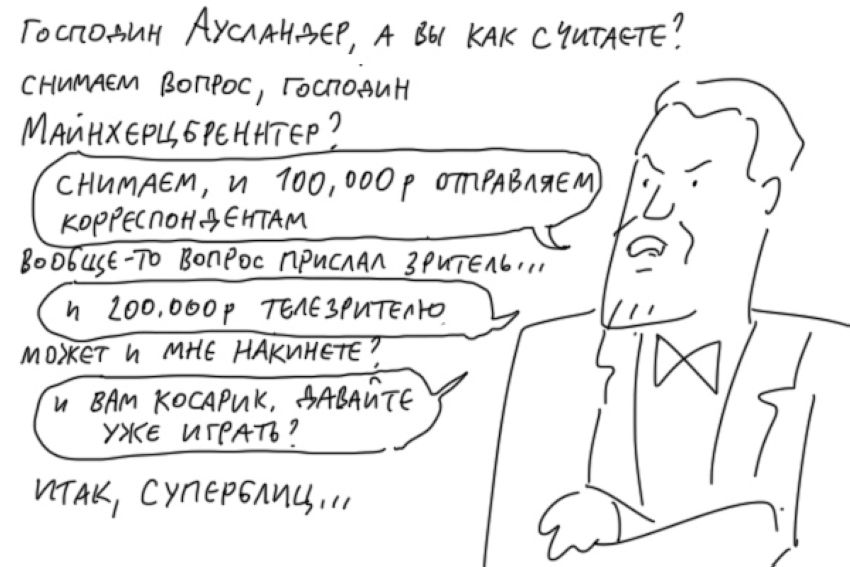 Господин Аусландер, а вы как считаете?
снимаем вопрос, господин
Майнхерцбреннтер?
снимаем, и 100,000р отправляем
корреспондентам
вообще-то вопрос прислал зритель...
и 200.000р телезрителю
может и мне накинете?
и вам косарик. давайте
уже играть?
итак, суперблиц...